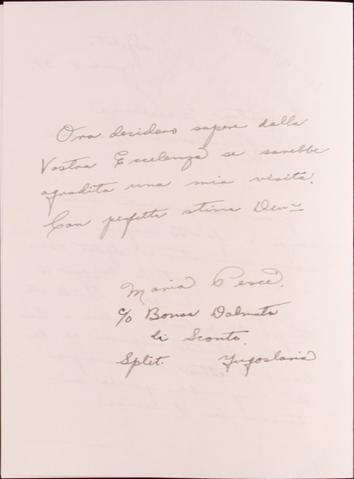 Ora desidero sapere dalla
Vostra Eccelenza se sarebbe
agradita una mia visita.
Con perfetta stima Dev~
Maria
c/o Banca Dalmata
di Sconto.
Split. Yugoslavia